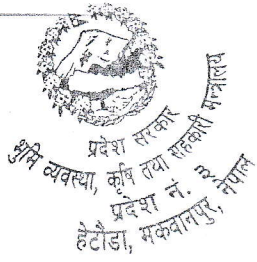 प्रदेश सरकार
भुमि व्यवस्था, कृषि तथा सहकारी मन्त्रालय
प्रदेश नं. ३, नेपाल
हेटौंडा, मकवानपुर,